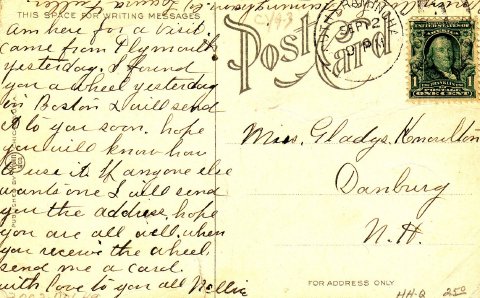 THIS SPACE FOR WRITING MESSAGES
am here for a visit.
came from Plymouth
yesterday. I found
you a wheel yesterday
in Boston I will send
it to you soon. hope
you will know how
to use it. If anyone else
wants one I will send
you the address. hope
you are all well. when
you receive the wheel
send me a card.
with love to you all Nellie
Post Card
SEP 12
POSTAGE
ONE CENT
Miss. Gladys Knowlton
Danbury
N. H.
FOR ADDRESS ONLY
HH-Q 250